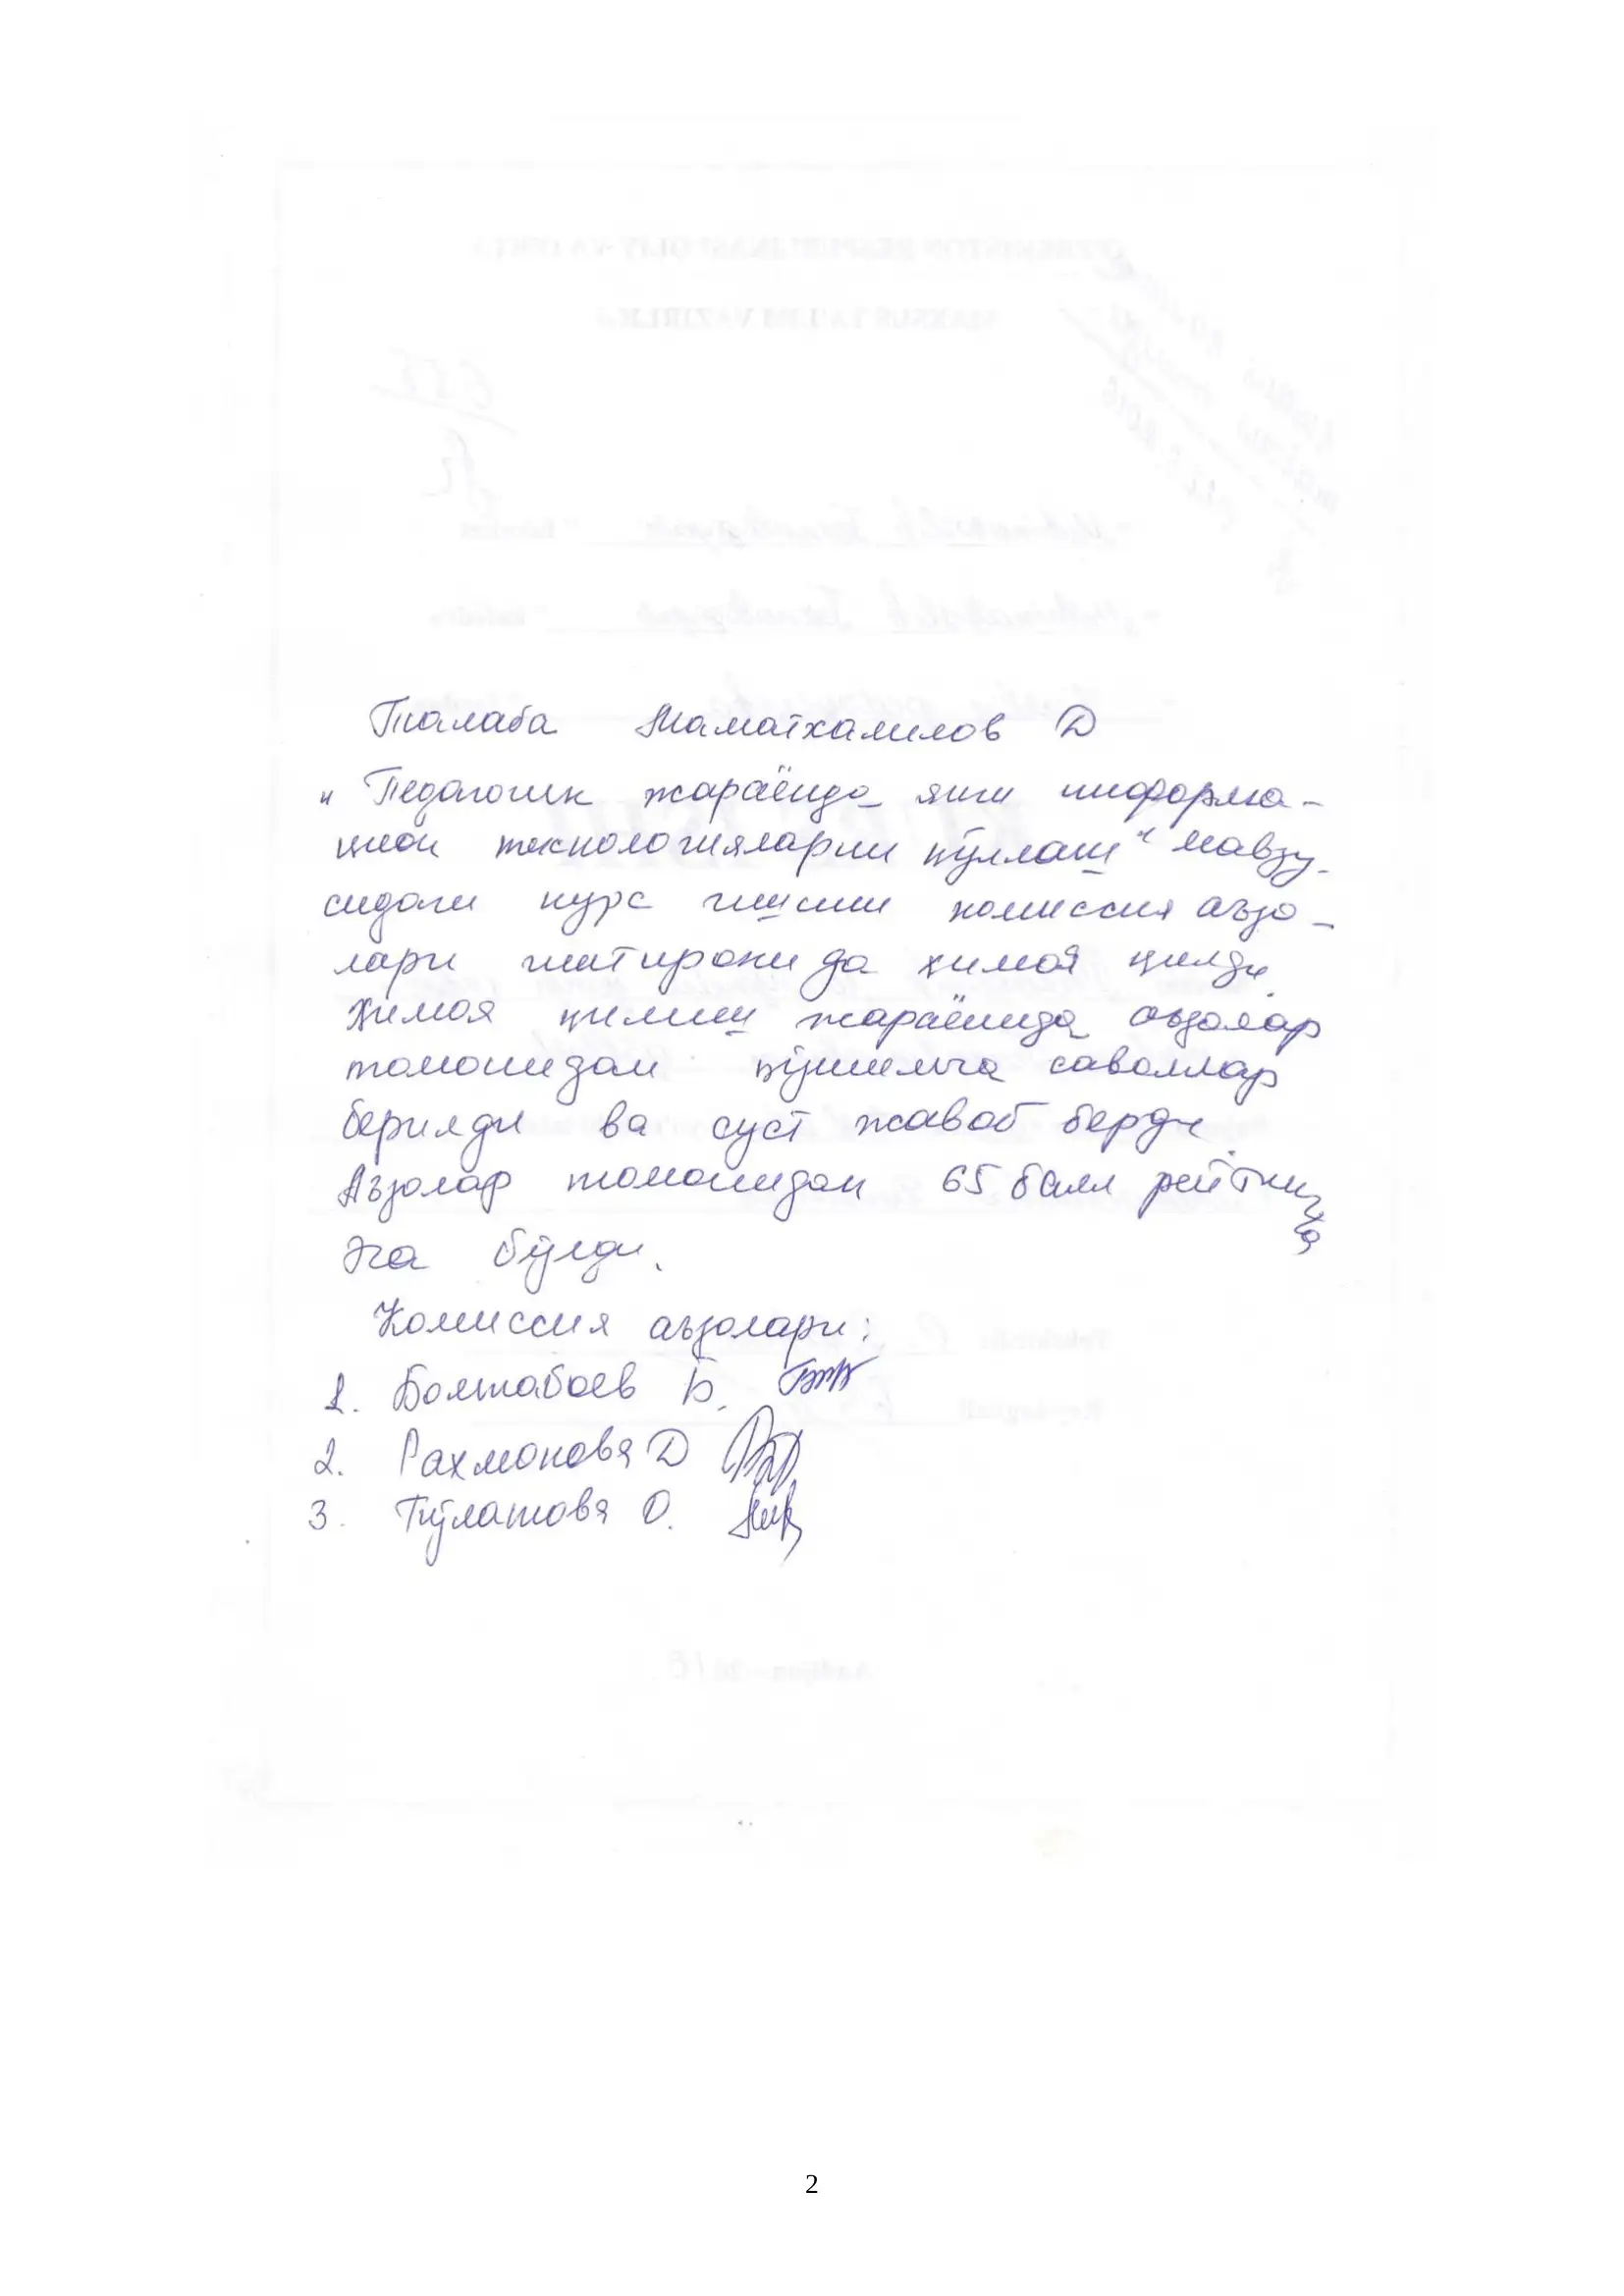 Талаба Маматхалилов Д
" Педагогик жараёнда янги информа-
цион технологияларни қўллаш" мавзу-
сидаги курс ишини комиссия аъзо-
лари иштирокида ҳимоя қилди.
Ҳимоя қилиш жараёнида аъзолар
томонидан қўшимча саволлар
берилди ва суст жавоб берди.
Аъзолар томонидан 65 балл рейтингга
эга бўлди.
Комиссия аъзолари:
1. Болтабоев Б.
2. Рахмонова Д
3. Пўлатова О.
2